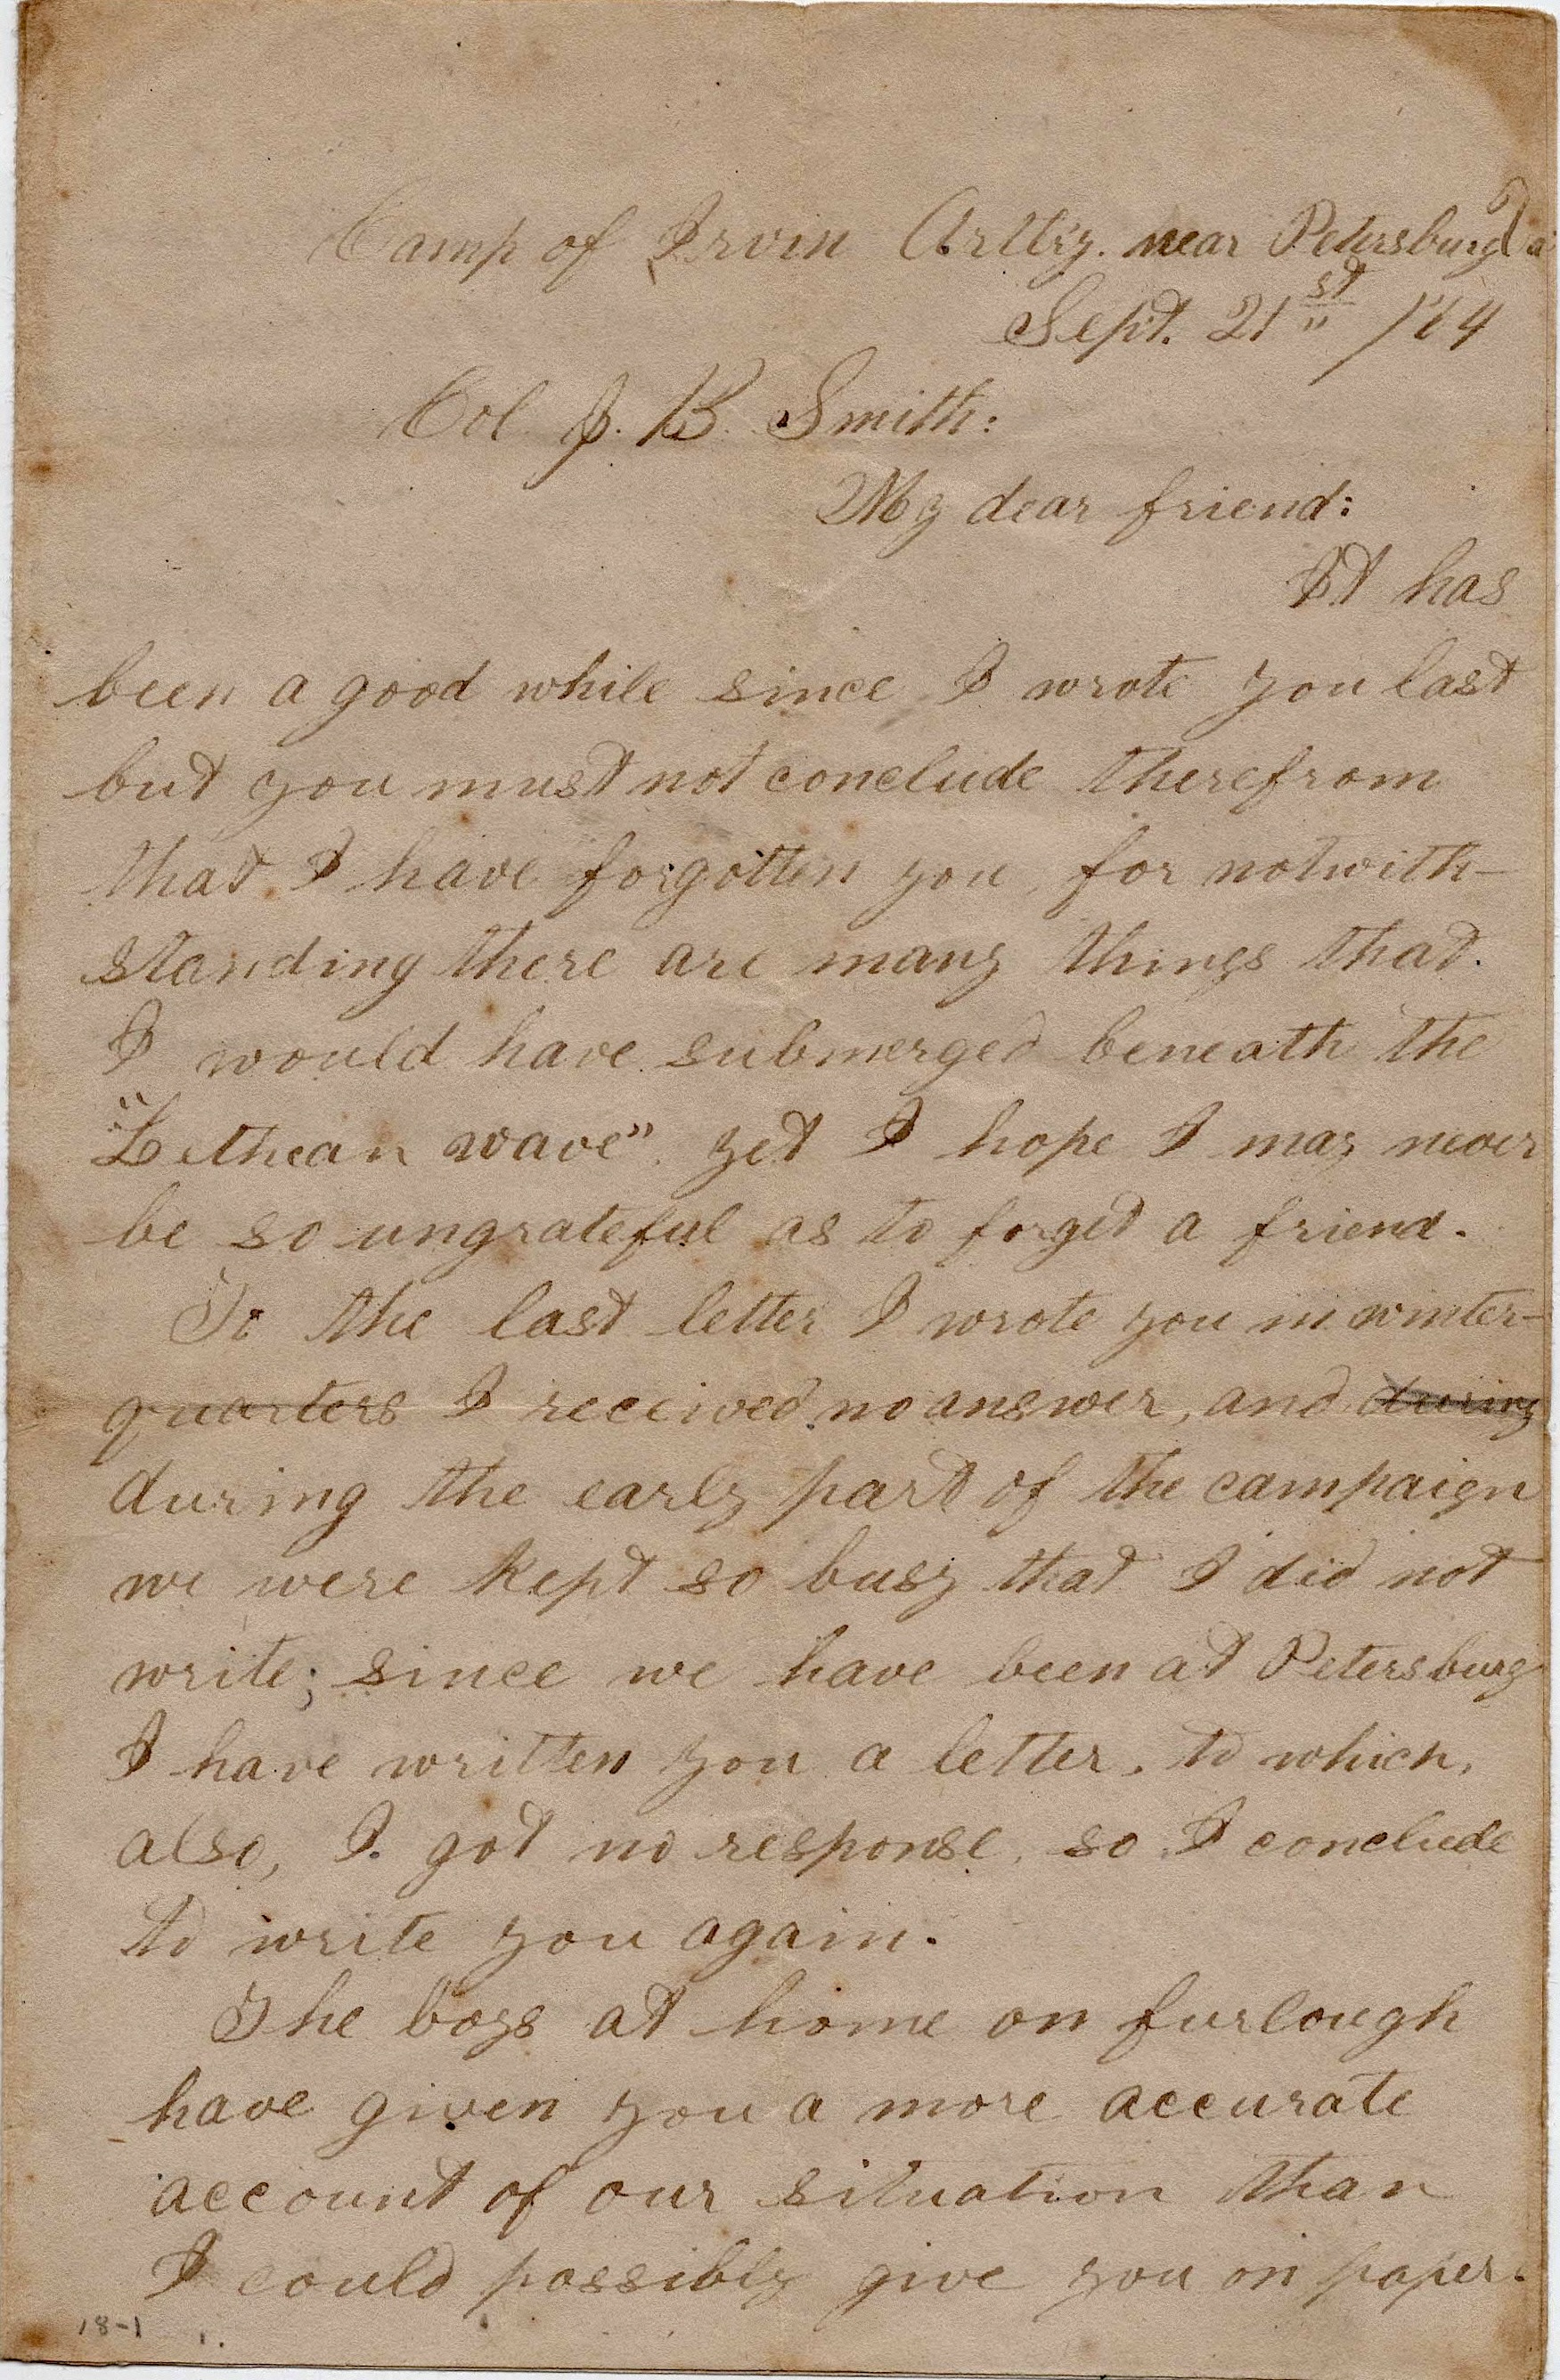 Camp of Irvin Artlry. near Petersburg Va
Sept. 21st /64
Col. J. B. Smith:
My dear friend:
It has
been a good while since I wrote you last
but you must not conclude therefrom
that I have forgotten you, for notwith-
standing there are many things that
I would have submerged beneath the
"Lethean wave" yet I hope I may never
be so ungrateful as to forget a friend.
To the last letter I wrote you in winter-
quarters I received no answer, and during
during the early part of the campaign
we were kept so busy that I did not
write; since we have been at Petersburg
I have written you a letter, to which,
also, I got no response, so I conclude
to write you again.
The boys at home on furlough
have given you a more accurate
account of our situation than
I could possibly give you on paper.
18-1 1.